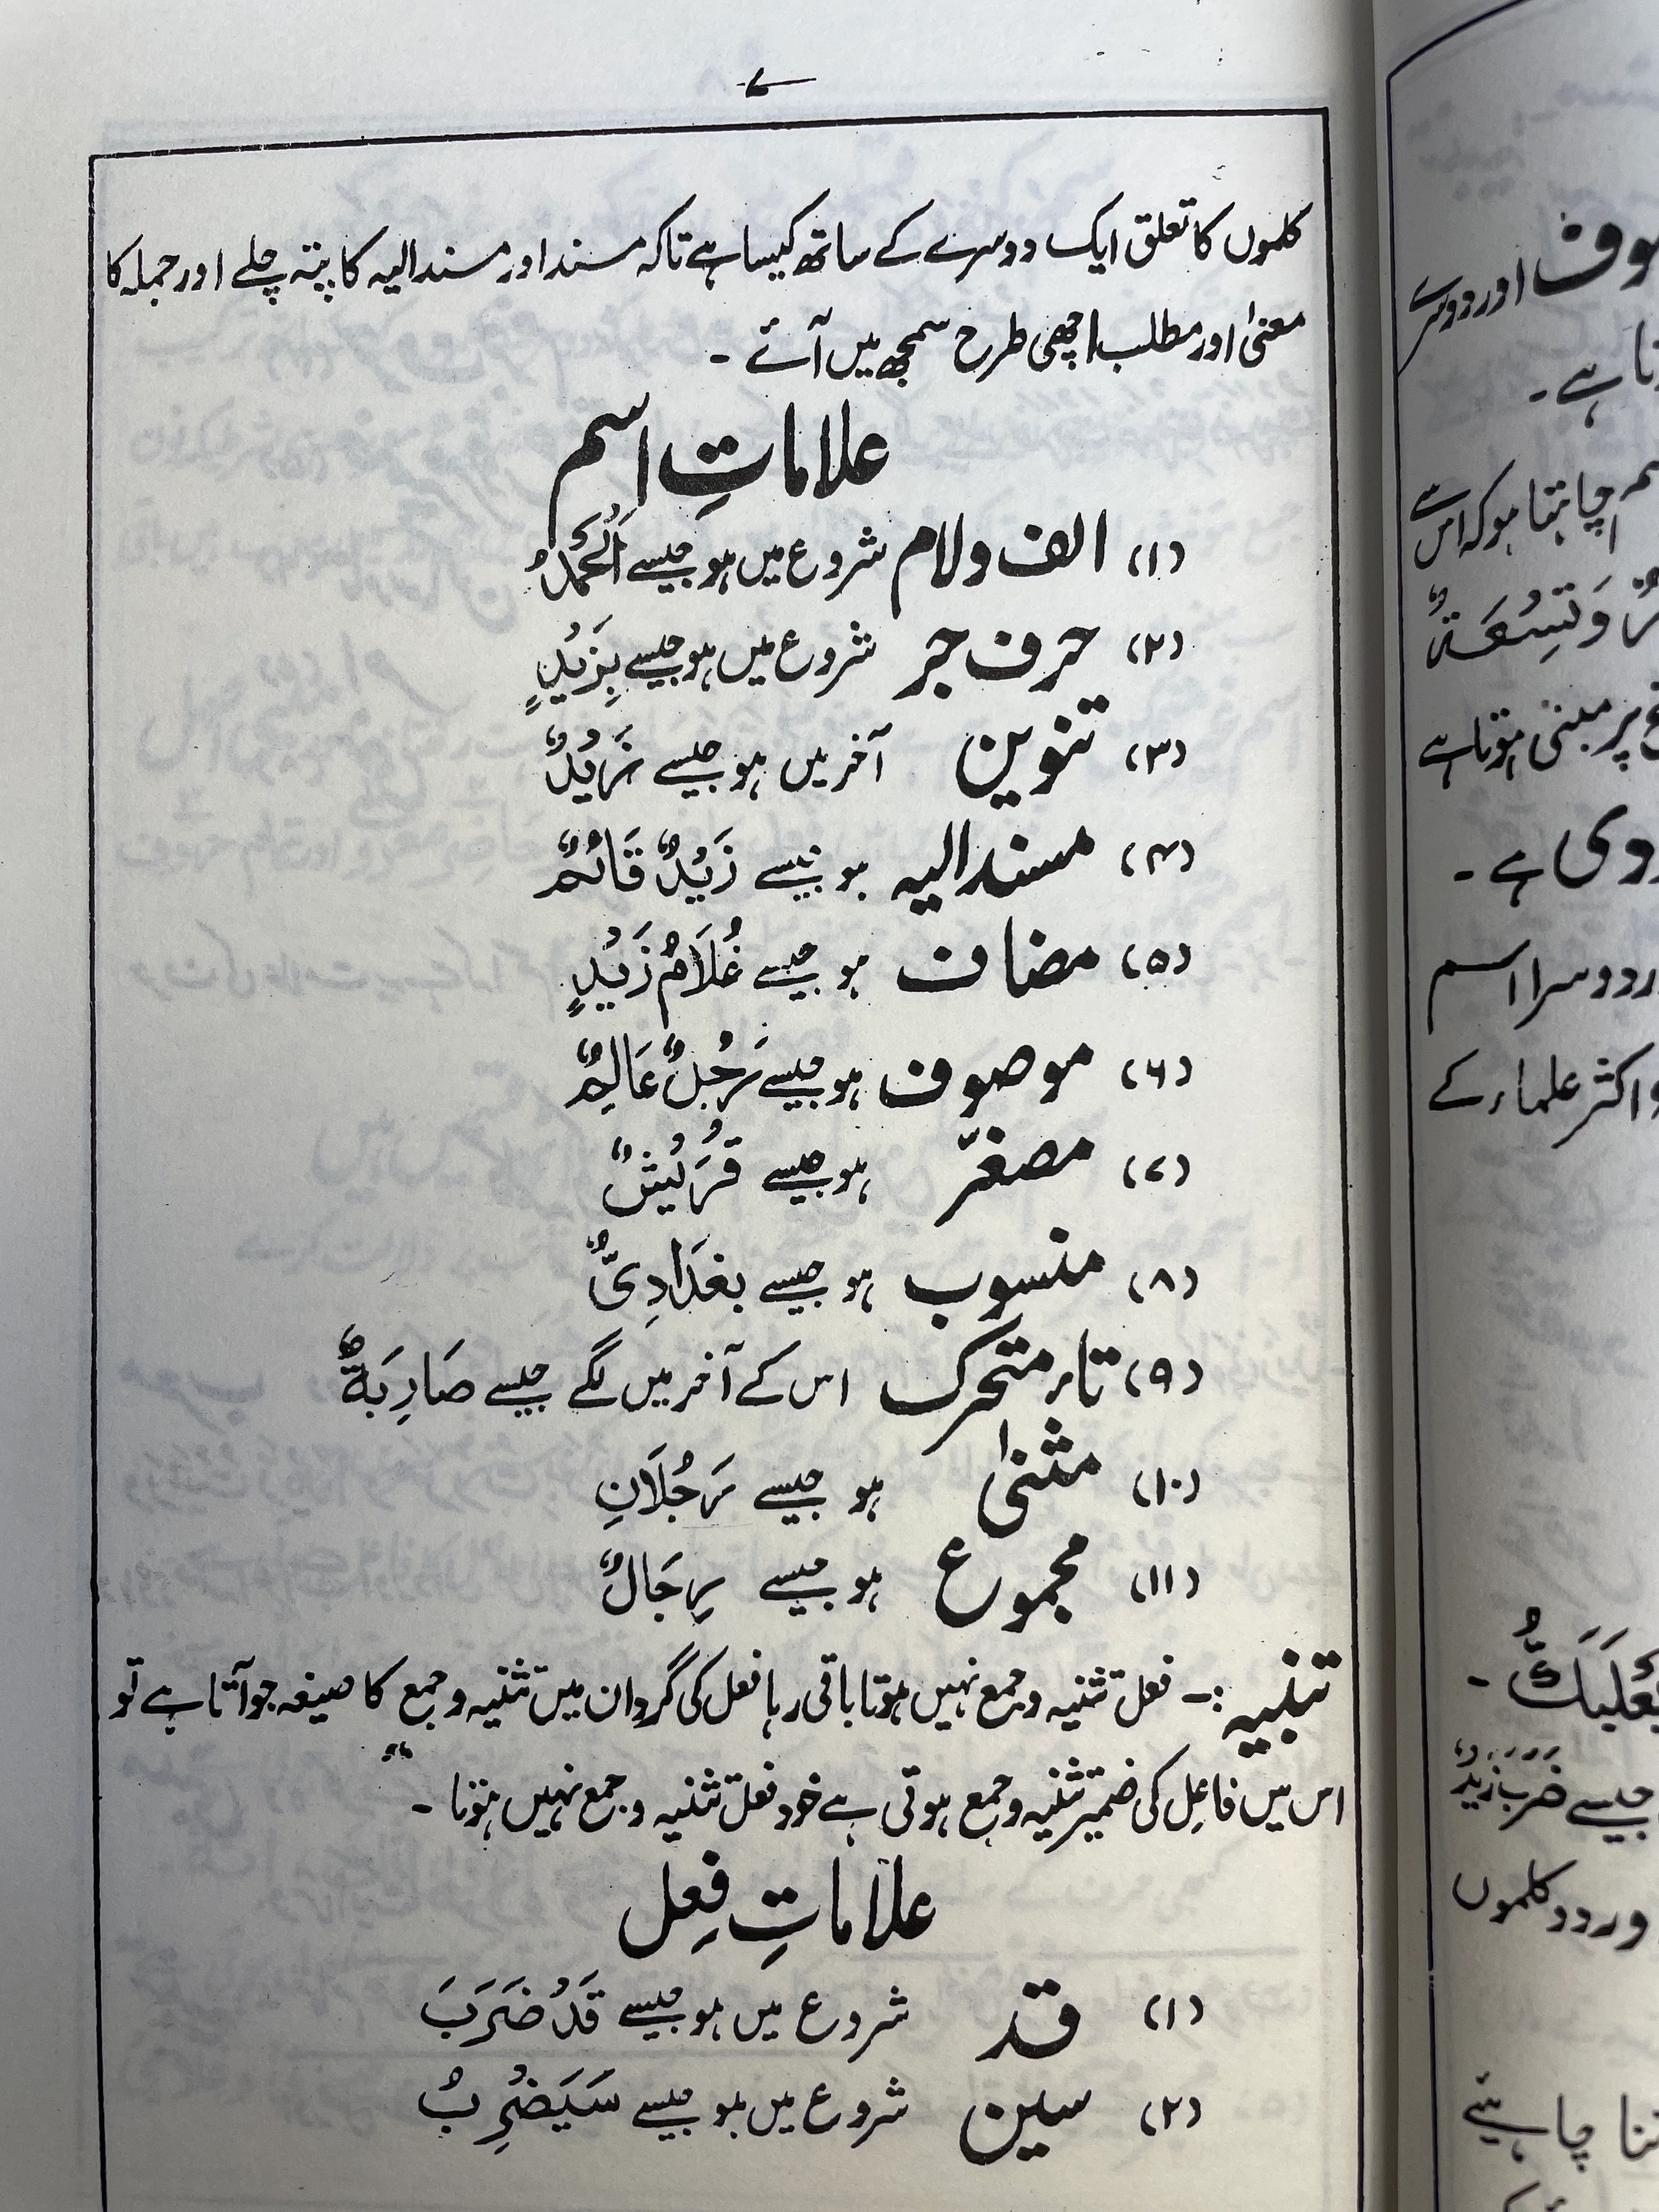 ۷
کلموں کا تعلق ایک دوسرے کے ساتھ کیسا ہے تاکہ مسند اور مسند الیہ کا پتہ چلے اور جملہ کا
معنیٰ اور مطلب اچھی طرح سمجھ میں آئے ۔
علاماتِ اسم
(۱) الف و لام شروع میں ہو جیسے اَلْحَمْدُ
(۲) حرف جر شروع میں ہو جیسے بِزَیْدٍ
(۳) تنوین آخر میں ہو جیسے زَیْدٌ
(۴) مسند الیہ ہو جیسے زَیْدٌ قَائِمٌ
(۵) مضاف ہو جیسے غُلَامُ زَیْدٍ
(۶) موصوف ہو جیسے رَجُلٌ عَالِمٌ
(۷) مصغّر ہو جیسے قُرَیْشٌ
(۸) منسوب ہو جیسے بغدَادِیٌّ
(۹) تاء متحرک اس کے آخر میں لگے جیسے ضَارِبَةٌ
(۱۰) مثنیٰ ہو جیسے رَجُلَانِ
(۱۱) مجموع ہو جیسے رِجَالٌ
تنبیہ :۔ فعل تثنیہ و جمع نہیں ہوتا باقی رہا فعل کی گردان میں تثنیہ و جمع کا صیغہ جو آتا ہے تو
اس میں فاعِل کی ضمیر تثنیہ و جمع ہوتی ہے خود فعل تثنیہ و جمع نہیں ہوتا ۔
علاماتِ فِعل
(۱) قد شروع میں ہو جیسے قَدْ ضَرَبَ
(۲) سین شروع میں ہو جیسے سَیَضْرِبُ
اور دوسرے
ہے ۔
چاہتا ہو کہ اس سے
وَتِسْعَةٌ
پر مبنی ہوتا ہے
ہے ۔
دوسرا اسم
اکثر علماء کے
جیسے ضَرَبَ زَیْدٌ
دو کلموں
چاہیئے